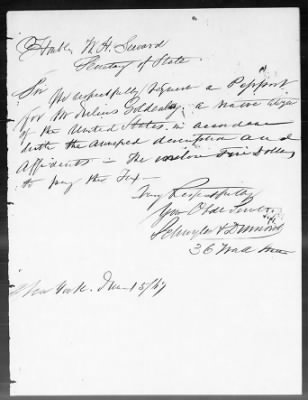 Honble W. H. Seward
Secretary of State
Sir
We respectfully request a Passport
for Mr Julius
of the United States in accordance
with the annexed description and
Affidavits — We enclose Five Dollars
to pay the Tax —
Very Respectfully
Your Obdt Servts
Schuyler &
36 Wall Street
New York. 15/67